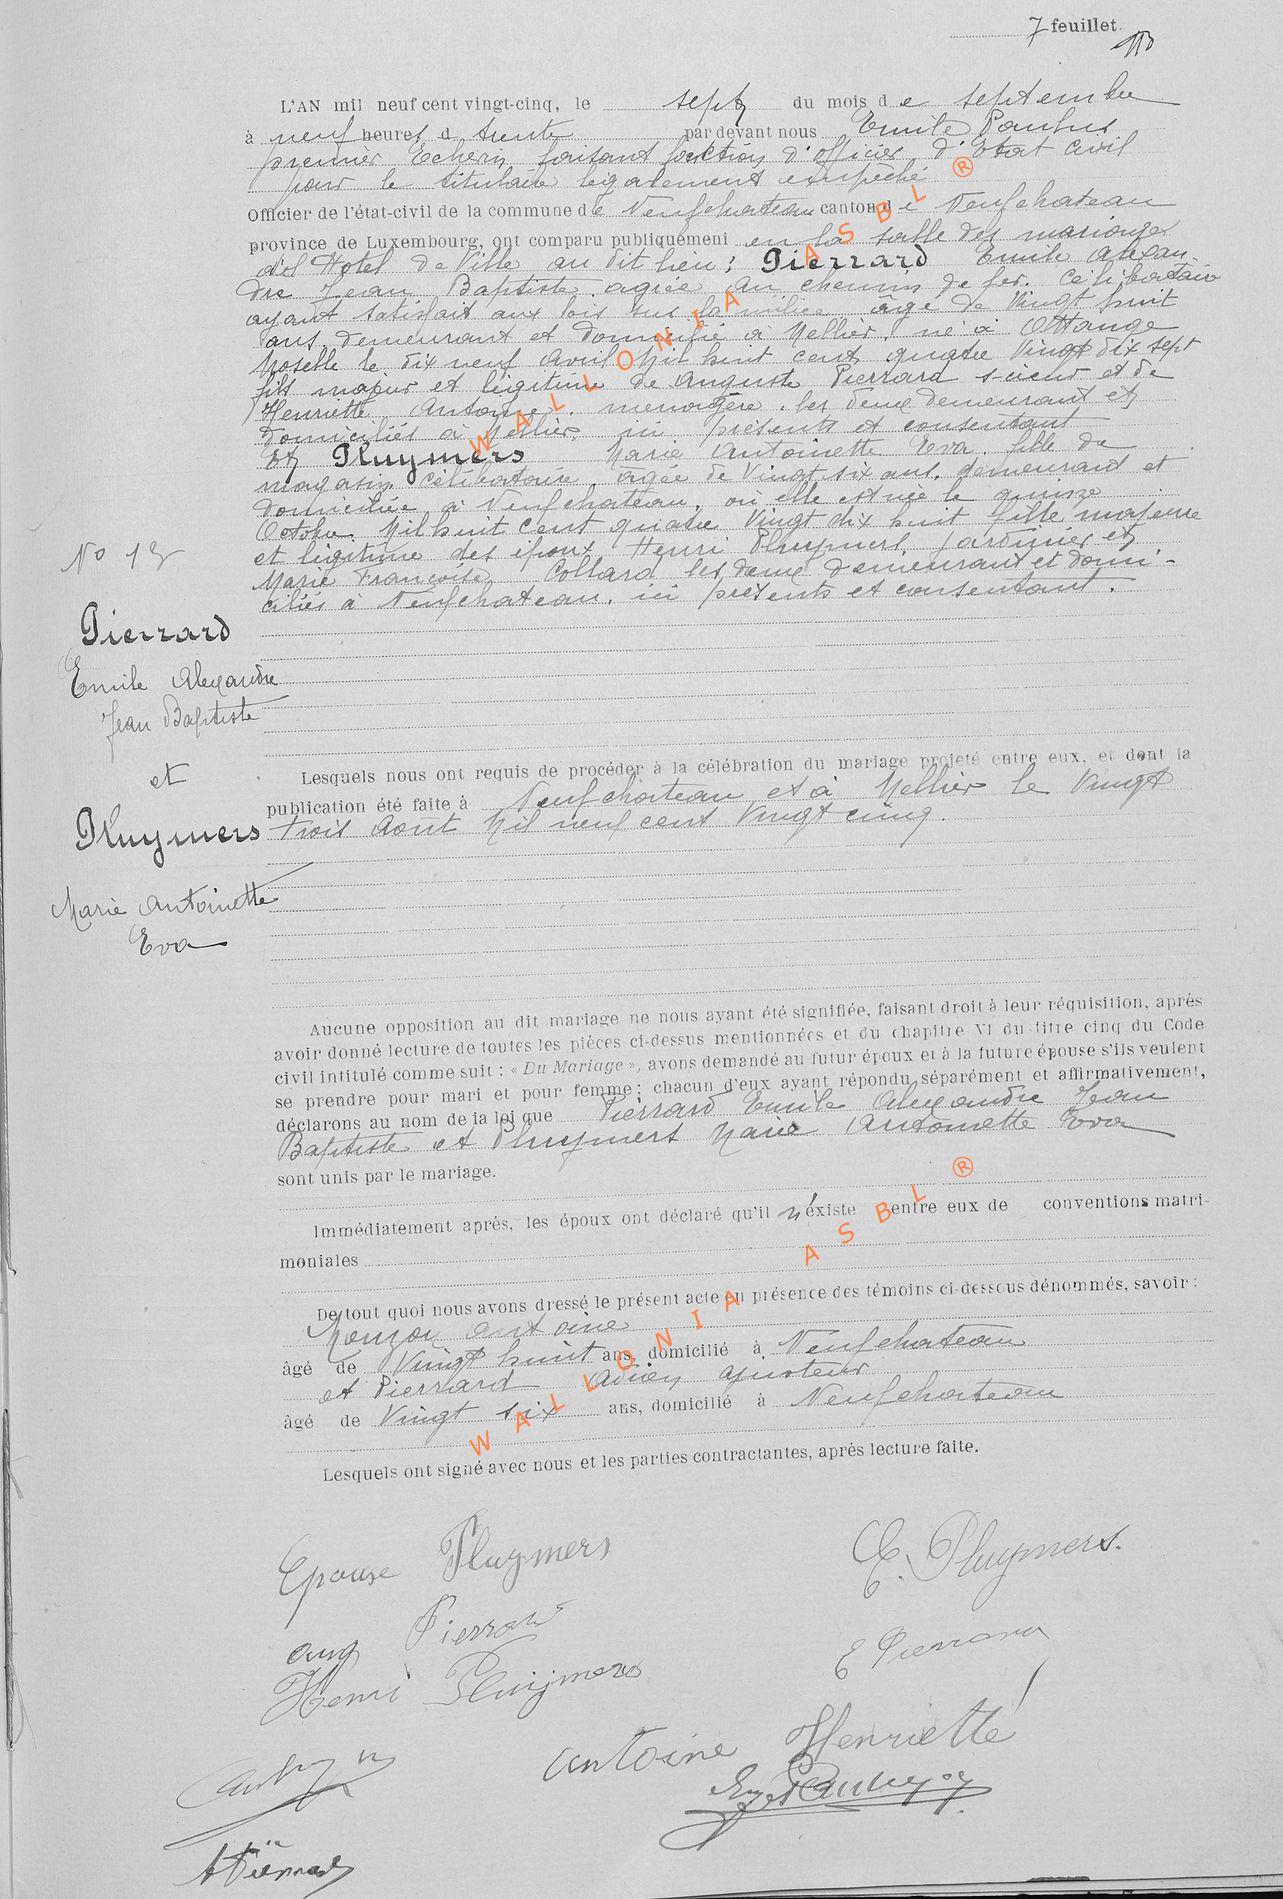 7 feuillet.
L'AN mil neuf cent vingt-cinq, le sept du mois de septembre
à neuf heures d trente par devant nous Emile Paulus
premier Echevin faisant fonction d'officier d'Etat Civil
pour le titulaire légalement empêché
Officier de l'état-civil de la commune de Neufchateau canton de Neufchateau
province de Luxembourg, ont comparu publiquement en la salle des mariages
de l'Hotel de Ville au dit lieu; Pierrard Emile Alexan-
dre Jean Baptiste, agréé au chemin de fer. Célibataire
ayant satisfait aux lois sur la milice âgé de Vingt huit
ans, demeurant et domicilié à Mellier, né à Ottange
Moselle le dix neuf avril Mil huit cent quatre Vingt dix sept
fils majeur et légitime de Auguste Pierrard scieur et de
Henriette Antoine, menagère, les deux demeurant et
domiciliés à Mellier, ici présents et consentant
Et Pluymers Marie Antoinette Eva, fille de
magasin célibataire âgée de Vingt six ans, demeurant et
domiciliée à Neufchateau, où elle est née le quinze
Octobre Mil huit cent quatre Vingt dix huit fille majeure
et légitime des époux Henri Pluymers, jardinier et
Marie Françoise Collard les deux demeurant et domi-
ciliés à Neufchateau, ici présents et consentant.
No 13
Pierrard
Emile Alexandre
Jean Baptiste
et
Pluymers
Marie Antoinette
Eva
Lesquels nous ont requis de procéder à la célébration du mariage projeté entre eux, et dont la
publication été faite à Neufchateau et à Mellier le Vingt
trois Août Mil neuf cent Vingt cinq.
Aucune opposition au dit mariage ne nous ayant été signifiée, faisant droit à leur réquisition, après
avoir donné lecture de toutes les pièces ci-dessus mentionnées et du chapitre VI du titre cinq du Code
civil intitulé comme suit : « Du Mariage », avons demandé au futur époux et à la future épouse s'ils veulent
se prendre pour mari et pour femme; chacun d'eux ayant répondu séparément et affirmativement,
déclarons au nom de la loi que Pierrard Emile Alexandre Jean
Baptiste et Pluymers Marie Antoinette Eva
sont unis par le mariage.
Immédiatement après, les époux ont déclaré qu'il n'existe entre eux de conventions matri-
moniales
De tout quoi nous avons dressé le présent acte en présence des témoins ci-dessous dénommés, savoir :
Antoine
âgé de Vingt huit ans, domicilié à Neufchateau
et Pierrard Adrien ajusteur
âgé de Vingt six ans, domicilié à Neufchateau
Lesquels ont signé avec nous et les parties contractantes, après lecture faite.
Epouse Pluymers
E. Pluymers.
Aug Pierrard
E Pierrard
Henri Pluijmers
Antoine Henriette
WALLONIA ASBL ®
WALLONIA ASBL ®